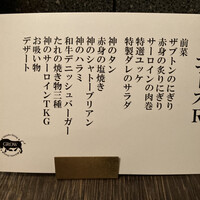 前菜
ザブトンのにぎり
赤身の炙りにぎり
サーロインの肉巻
特選ユッケ
特製ダレのサラダ
神のタン
赤身の塩焼き
神のシャトーブリアン
神のハラミ
和牛デニッシュバーガー
たれの焼き物三種
神のサーロインTKG
お吸い物
デザート